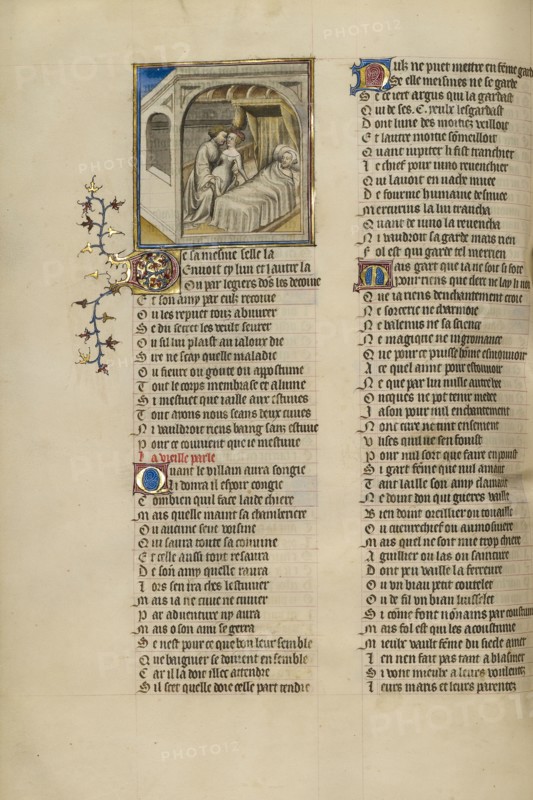 De sa mesme selle la
Envoit cy lun et lautre la
Ou par legiers dos les decoive
Et son amy par eulx recoive
Ou les repuet touz abuvrer
Se du secret les veult seurer
Ou sil lui plaist au ialoux die
Sire ne scay quelle maladie
Ou fievre ou goute ou appostume
Tout le corps membrase et alume
Si mestuet que iaille aux estuves
Tout avons nous ceans deux cuves
Ni vauldroit riens baing sanz estuve
Pour ce couvient que ie mestuve
La vieille parle
Quant le villain aura songie
Li donra il espoir congie
Combien quil face laide chiere
Mais quelle maint sa chamberiere
Ou aucune seue voisine
Qui saura toute sa couvine
Et celle aussi tout resaura
De son amy quelle raura
Lors sen ira ches lestuvier
Mais ia ne cuve ne cuvier
Par adventure ny aura
Mais o son ami se gerra
Se nest pour ce que bon leur semble
Que baignier se doivent ensemble
Car il la doit illec attendre
Sil scet quelle doie celle part tendre
Nulz ne puet mettre en feme garde
Se elle meismes ne se garde
Se ce iert argus qui la gardast
Qui de ses .C. yeulx lesgardast
Dont lune des moitiez veilloit
Et lautre moitie someilloit
Quant iupiter li fist tranchier
Le chief pour iuno revenchier
Qui lavoit en vache muee
De fourme humaine desnuee
Mercurius la lui trancha
Quant de iuno la revencha
Ni vauldroit sa garde mais rien
Fol est qui garde tel merrien
Mais gart que ia ne soit si sote
Pour riens que clerc ne lay li note
Que ia riens denchantement croie
Ne sorcerie ne charmoie
Ne balenus ne sa science
Ne magique ne nigromance
Que pour ce puisse home esmouvoir
A ce quel aime pour estouvoir
Ne que par lui nulle autre hee
Oncques ne pot tenir medee
Iason pour nul enchantement
Nonc circe ne tint ensement
Ulixes quil ne sen fouist
Pour nul sort que faire en poist
Si gart feme que nul amant
Tant laille son amy clamant
Ne doint don qui guieres vaille
Bien doint oreillier ou touaille
Ou cuevrechief ou aumosniere
Mais quel ne soit mie trop chiere
Aguillier ou las ou sainture
Dont peu vaille la ferreure
Ou un biau petit coutelet
Ou de fil un biau luisselet
Si come font nonains par coustume
Mais fol est qui les acoustume
Mieulx vault feme du siecle amer
Len nen fait pas tant a blasmer
Si vont mieulx a leurs voulentez
Leurs maris et leurs parentez
PHOTO12